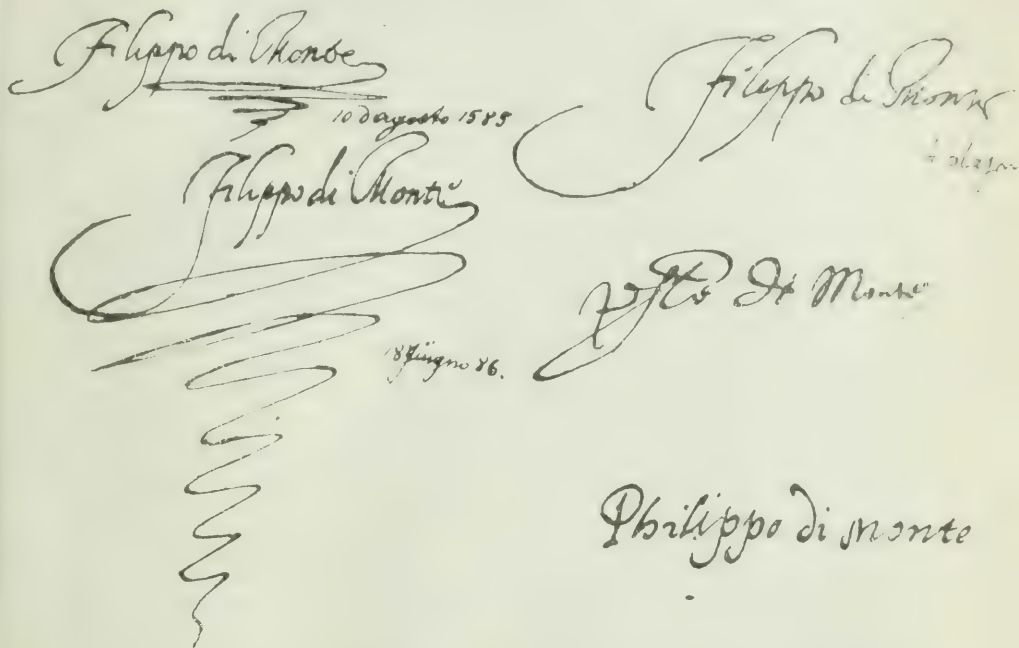 Filippo di Monte
10 d agosto 1585
Filippo di Monte
18 giugno 86.
Filippo di Monte
de Monte
Philippo di Monte